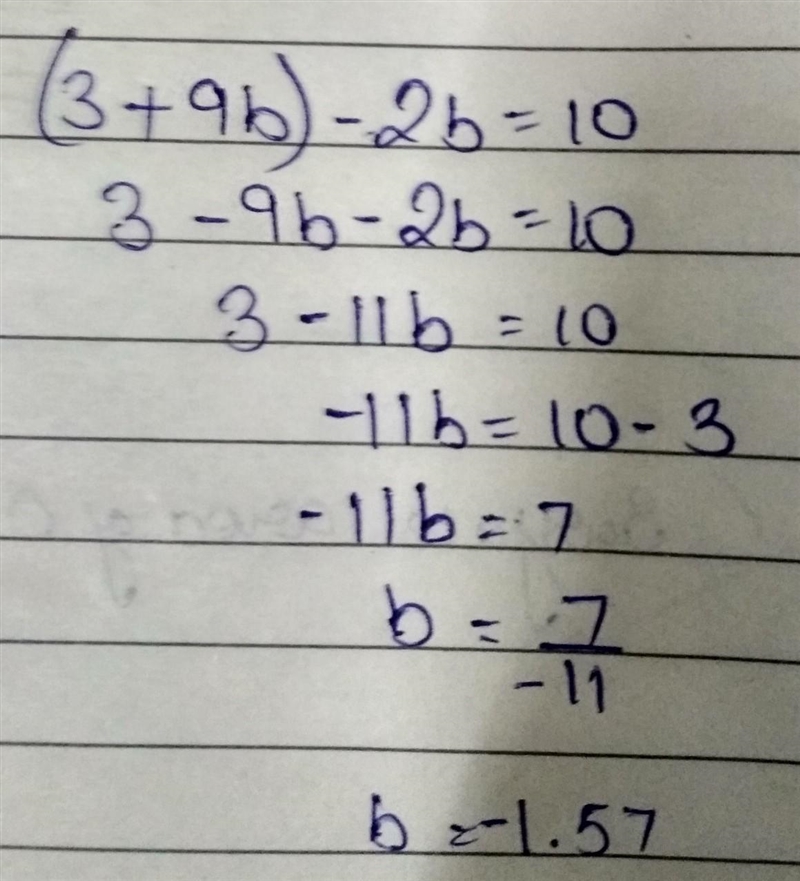 (3+9b)-2b=10
3-9b-2b=10
3-11b=10
-11b=10-3
-11b=7
b=7/-11
b=-1.57